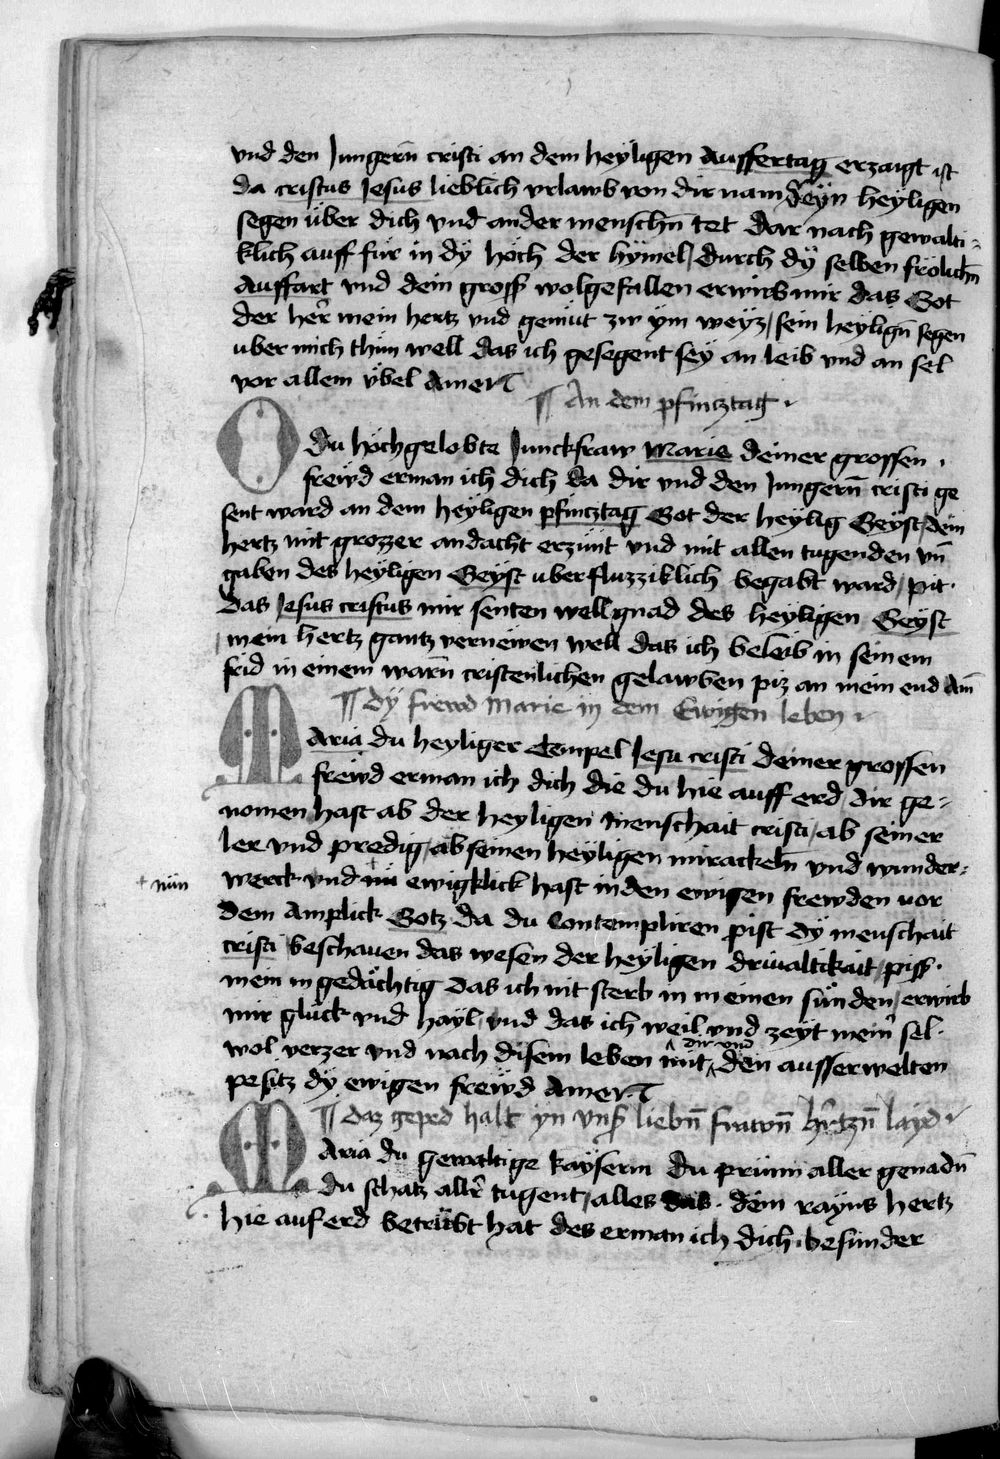 vnd den Jungern̄ cristi an dem heyligen auffertag erzaigt ist
da cristus Jesus lieblich vrlawb von dir nam seyn heyligen
segen über dich vnd ander menschn̄ tet dar nach gewalti-
klich auff für in dÿ höch der hymel / durch dÿ selben frölichn̄
auffart vnd dein gross wolgefallen erwirb mir das Got
der her̄ mein hertz vnd gemüt zw ym weyz / sein heylign̄ segen
uber mich thün well das ich gesegent seÿ an leib vnd an sel
vor allem übel Amen
¶ An dem pfincztag
O du hochgelobte Junckfraw Maria deiner grossen
frewd erman ich dich da dir vnd den Jungern̄ cristi ge
sent ward an dem heyligen pfincztag Got der heylig Geyst / dein
hertz mit grozzer andacht erzünt vnd mit allen tugenden vn̄
gaben des heyligen Geyst uberfluzziklich begabt ward / pit
das Jesus cristus mir senten well gnad des heyligen Geyst
mein hertz gantz vernewen well das ich beleib in seinem
frid in einem warn̄ cristenlichen gelawben piz an mein end Am̄
¶ Dÿ frewd Marie in dem Ewigen leben
Maria du heyliger Tempel Jesu cristi deiner grossen
frewd erman ich dich die du hie auff erd dir ge-
nomen hast ab der heyligen menschait cristi / ab seiner
ler vnd predig / ab seinen heyligen mirackeln̄ vnd wunder-
+ nün
werck vnd nü ewigklick hast in den ewigen frewden vor
dem Amplick Gotz da du Contempliren pist dÿ menschait
cristi beschauen das wesen der heyligen driualtikait / piss
mein in gedächtig Das ich nit sterb in meinen sünden / erwirb
mir glück vnd hayl / vnd das ich weil vnd zeyt mein̄ sel
dir vnd
wol verzer vnd nach disem leben mit den ausserwelten
pesitz dÿ ewigen frewd Amen
¶ Daz geped halt yn vnsr̄ liebn̄ frawn̄ hr̄tzn̄ layd
Maria du gewaltige kayserin du prünn aller genadn̄
du schatz allr̄ tugent / alles das dein rayns hertz
hie auf erd betrübt hat des erman ich dich besunder